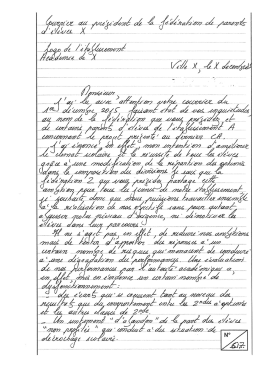 Courrier au président de la fédération de parents
d'élèves X
Logo de l'établissement
Académie de X
Ville X, le X décembre
Monsieur,
J'ai lu avec attention votre courrier du
1er décembre 2015, faisant état de vos inquiétudes
au nom de la fédération que vous présidez et
de certains parents d'élèves de l'établissement
concernant le projet présenté au dernier CA.
J'ai exprimé, en effet, mon intention d'améliorer
le climat scolaire et la réussite de tous les élèves
grâce à une modification de la répartition des options
dans la composition des divisions. Je sais que la
fédération que vous présidez partage cette
ambition pour tous les élèves de notre établissement,
je souhaite donc que nous puissions travailler ensemble
à la réalisation de nos objectifs sans pour autant
niveau d'exigence, ou
élèves dans leur parcours.
Il ne s'agit pas, en effet, de réduire nos ambitions
mais de tenter d'apporter des réponses à un
certain nombre de risques qui menacent de conduire
à une dégradation des performances. Une évaluation
de nos performances par l'autorité académique a,
en effet, mis en évidence un certain nombre de
dysfonctionnements :
- des écarts qui se creusent tant au niveau des
résultats que du comportement entre les 2ndes à options
et les autres classes de 2nde.
- Un sentiment "d'abandon" de la part des élèves
"non " qui conduit à des situations de
décrochage scolaire.
N°
1/07.